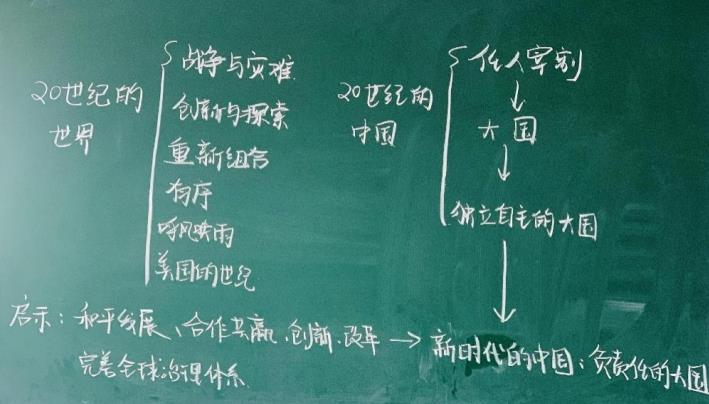 20世纪的
世界
战争与灾难
创新与探索
重新组合
有序
呼风唤雨
美国的世纪
20世纪的
中国
任人宰割
↓
大国
↓
独立自主的大国
↓
启示：和平发展、合作共赢、创新、改革 → 新时代的中国：负责任的大国
完善全球治理体系